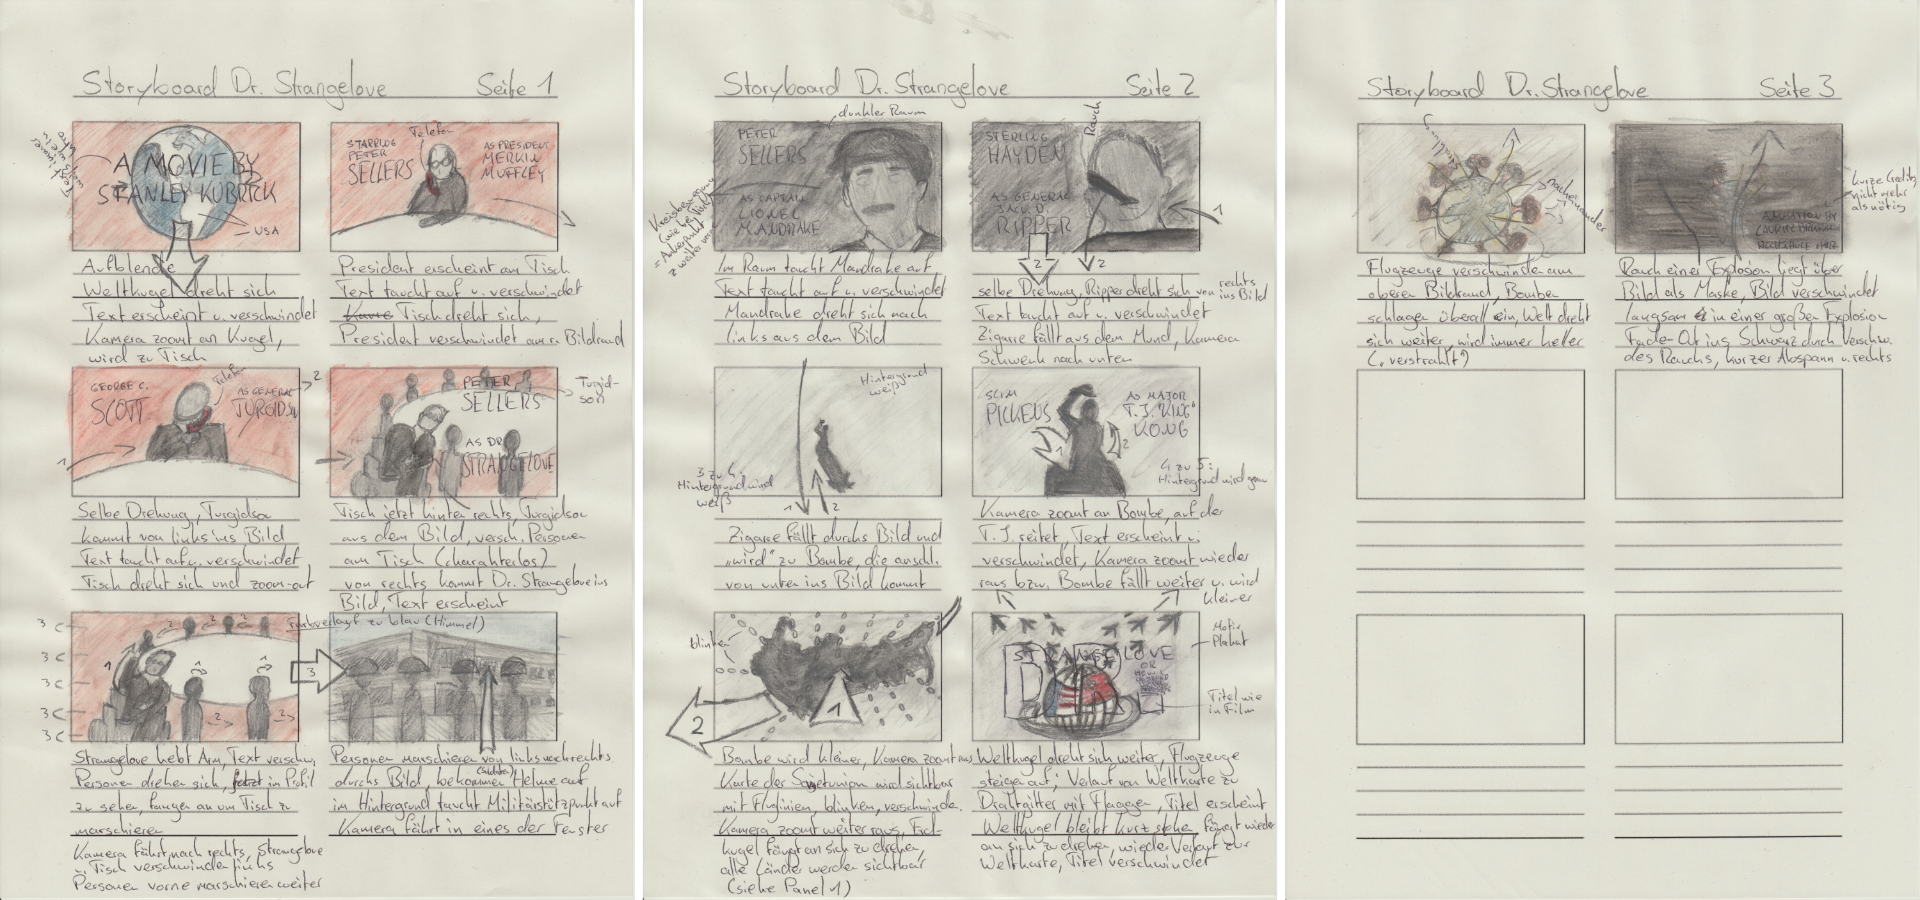 Storyboard Dr. Strangelove Seite 1
A MOVIE BY
STANLEY KUBRICK
USA
Aufblende
Weltkugel dreht sich
Text erscheint u. verschwindet
Kamera zoomt an Kugel,
wird zu Tisch
Telefon
STARRING
PETER
SELLERS
AS PRESIDENT
MERKIN
MUFFLEY
President erscheint am Tisch
Text taucht auf u. verschwindet
Tisch dreht sich,
President verschwindet am Bildrand
GEORGE C.
SCOTT
Telefon
AS GENERAL
TURGIDSON
1
2
Selbe Drehung, Turgidson
kommt von links ins Bild
Text taucht auf u. verschwindet
Tisch dreht sich und zoom-out
PETER
SELLERS
AS DR.
STRANGELOVE
Turgid-
son
Tisch jetzt hinten rechts, Turgidson
aus dem Bild, versch. Personen
am Tisch (charakterlos)
von rechts kommt Dr. Strangelove ins
Bild, Text erscheint
3
3
3
3
3
1
2
2
2
2
2
Strangelove hebt Arm, Text verschw.
Personen drehen sich, jetzt in Profil
zu sehen, fangen an um Tisch zu
marschieren
Kamera fährt nach rechts, Strangelove
u. Tisch verschwinden links
Personen vorne marschieren weiter
Farbverlauf zu blau (Himmel)
3
Personen marschieren von links nach rechts
durchs Bild, bekommen (Soldaten) Helme auf
im Hintergrund taucht Militärstützpunkt auf
Kamera fährt in eines der Fenster
Storyboard Dr. Strangelove Seite 2
dunkler Raum
PETER
SELLERS
AS CAPTAIN
LIONEL
MANDRAKE
Im Raum taucht Mandrake auf
Text taucht auf u. verschwindet
Mandrake dreht sich nach
links aus dem Bild
Rauch
STERLING
HAYDEN
AS GENERAL
JACK D.
RIPPER
1
2
2
selbe Drehung, Ripper dreht sich von rechts ins Bild
Text taucht auf u. verschwindet
Zigarre fällt aus dem Mund, Kamera
Schwenk nach unten
Hintergrund
weiß
3 zu 4:
Hintergrund wird
weiß
1
2
Zigarre fällt durchs Bild und
"wird" zu Bombe, die anschl.
von unten ins Bild kommt
SLIM
PICKENS
AS MAJOR
T.J. "KING"
KONG
1
2
4 zu 5:
Hintergrund wird grau
Kamera zoomt an Bombe, auf der
T.J. reitet, Text erscheint u.
verschwindet, Kamera zoomt wieder
raus bzw. Bombe fällt weiter u. wird
kleiner
blinken
1
2
Bombe wird kleiner, Kamera zoomt raus
Karte der Sowjetunion wird sichtbar
mit Fluglinien, blinken, verschwinden.
Kamera zoomt weiter raus, Erd-
kugel fängt an sich zu drehen,
alle Länder werden sichtbar
(siehe Panel 1)
STRANGELOVE
DR
OR
Motiv
Plakat
Titel wie
in Film
Weltkugel dreht sich weiter, Flugzeuge
steigen auf; Verlauf von Weltkarte zu
Drahtgitter mit Flaggen, Titel erscheint
Weltkugel bleibt kurz stehen fängt wieder
an sich zu drehen, wieder Verlauf zur
Weltkarte, Titel verschwindet
Storyboard Dr. Strangelove Seite 3
nacheinander
Flugzeuge verschwinden am
oberen Bildrand, Bomben
schlagen überall ein, Welt dreht
sich weiter, wird immer heller
("verstrahlt")
kurze Credits,
nicht mehr
als nötig
ANIMATION BY
HOCHSCHULE HARZ
Rauch einer Explosion liegt über
Bild als Maske, Bild verschwindet
langsam in einer großen Explosion
Fade-Out ins Schwarz durch Verschw.
des Rauchs, kurzer Abspann u. rechts